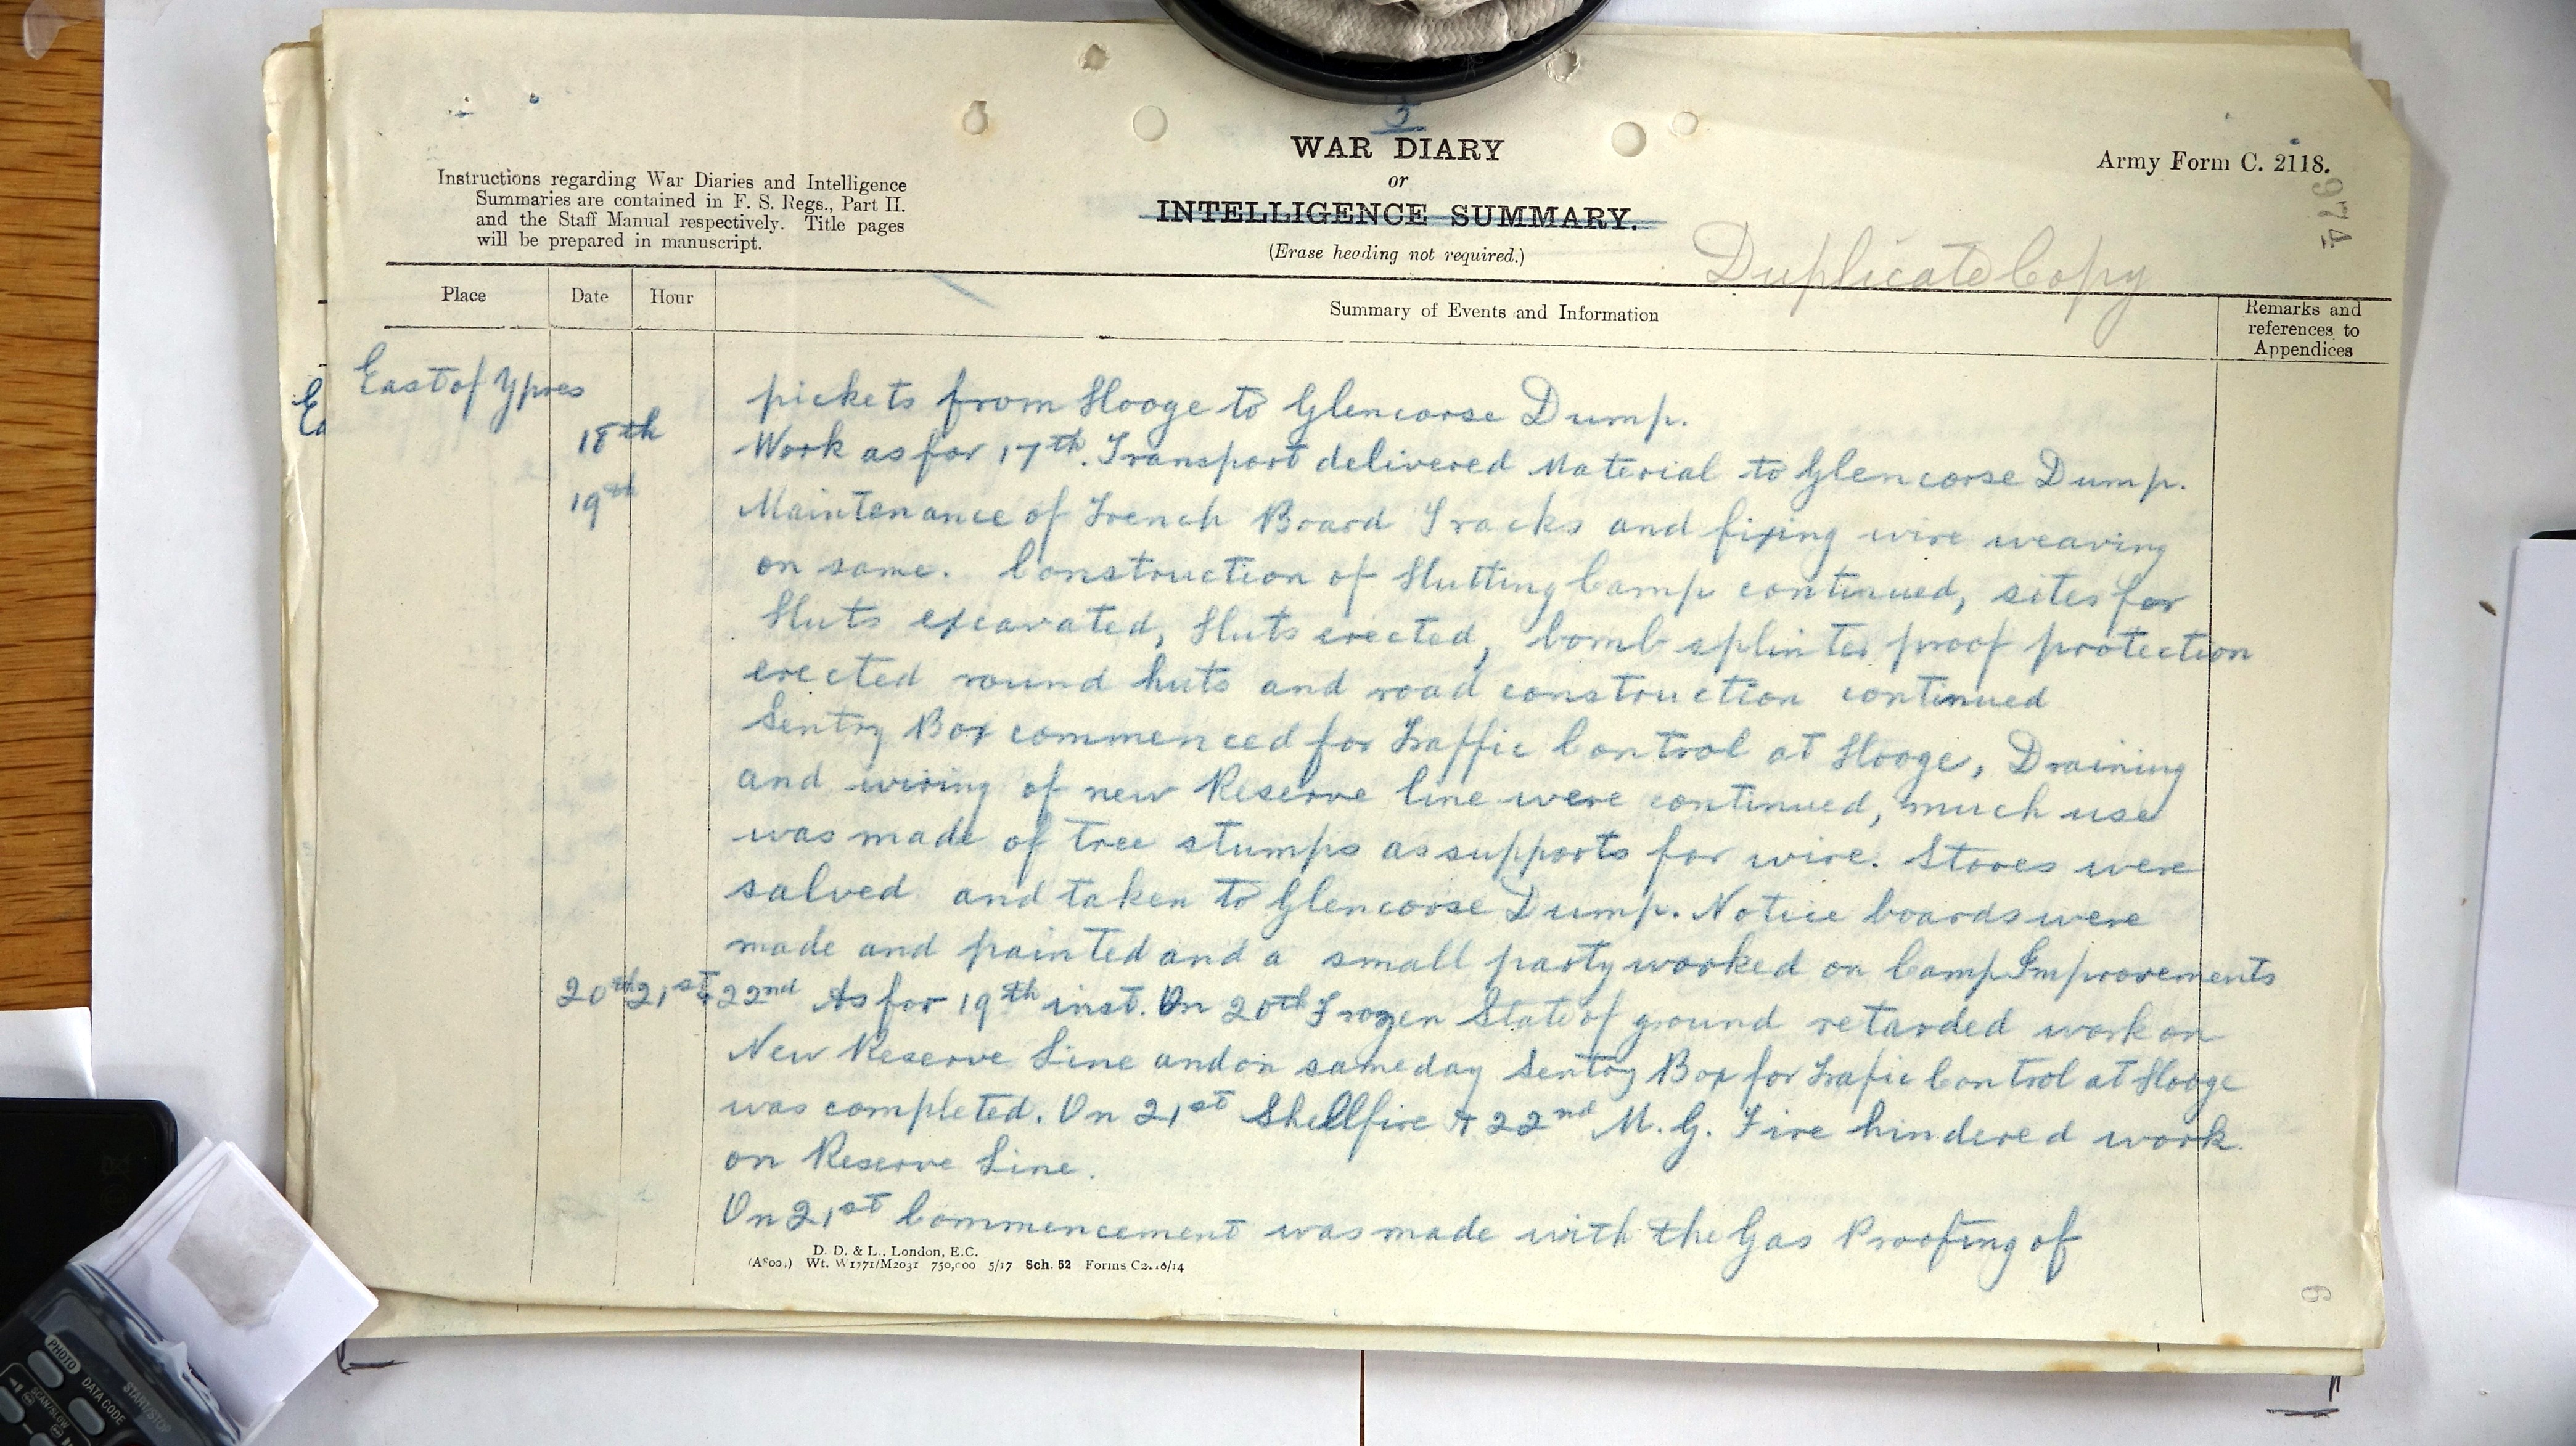 5
WAR DIARY
or
INTELLIGENCE SUMMARY.
(Erase heading not required.)
Army Form C. 2118.
974
Instructions regarding War Diaries and Intelligence
Summaries are contained in F. S. Regs., Part II.
and the Staff Manual respectively. Title pages
will be prepared in manuscript.
Duplicate Copy
Place Date Hour Summary of Events and Information Remarks and
references to
Appendices
East of Ypres pickets from Hooge to Glencorse Dump.
18th Work as for 17th. Transport delivered Material to Glencorse Dump.
19th Maintenance of Trench Board Tracks and fixing wire weaving
on same. Construction of Hutting Camp continued, sites for
Huts excavated, Huts erected, bomb splinter proof protection
erected round huts and road construction continued
Sentry Box commenced for Traffic Control at Hooge, Draining
and wiring of new Reserve line were continued, much use
was made of tree stumps as supports for wire. Stores were
salved and taken to Glencorse Dump. Notice boards were
made and painted and a small party worked on Camp Improvements
20th 21st & 22nd As for 19th inst. On 20th Frozen State of ground retarded work on
New Reserve Line and on same day Sentry Box for Trafic Control at Hooge
was completed. On 21st Shellfire & 22nd M.G. Fire hindered work
on Reserve Line.
On 21st Commencement was made with the Gas Proofing of
D. D. & L., London, E.C.
Wt. W1771/M2031 750,000 5/17 Sch. 52 Forms
6
PHOTO
DATA CODE
START/STOP
SCAN/SLOW